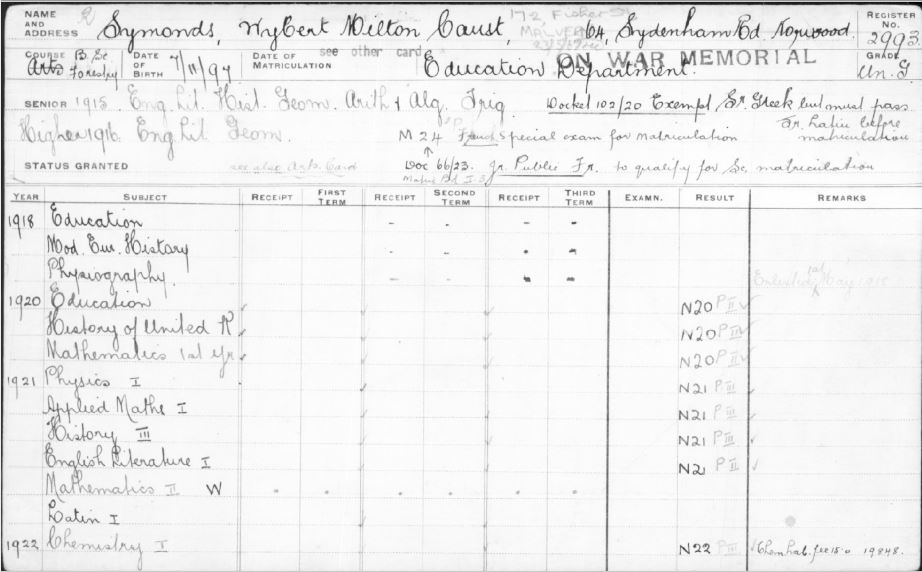 NAME AND ADDRESS Symonds, Wybert Milton Caust, 172, Fisher St MALVERN 64, Sydenham Rd Norwood REGISTER NO. 2993
COURSE Arts B Sc Forestry DATE OF BIRTH 7/11/97 DATE OF MATRICULATION see other card Education Department. ON WAR MEMORIAL GRADE Un. G.
SENIOR 1915 Eng. Lit. Hist. Geom. Arith & Alg. Trig Docket 102/20 Exempt Sr. Greek but must pass
Higher 1916. Eng. Lit Geom. M 24 French Special exam for matriculation Jr. Latin before matriculation
STATUS GRANTED see also Arts Card Doc 66/23. Jr. Public Fr. to qualify for Sc. matriculation
YEAR SUBJECT RECEIPT FIRST TERM RECEIPT SECOND TERM RECEIPT THIRD TERM EXAMN. RESULT REMARKS
1918 Education - - - -
Mod. Eur. History - - - -
Physiography - - - - Enlisted 1st May 1918
1920 Education N20 P II ✓
History of United K ✓ N20 P III ✓
Mathematics 1st yr ✓ N20 P II ✓
1921 Physics I N21 P III ✓
Applied Maths I N21 P II
History III N21 P III ✓
English Literature I N21 P II ✓
Mathematics II W
Latin I
1922 Chemistry I N22 P III Chem Lab. fee 15-0 19848.